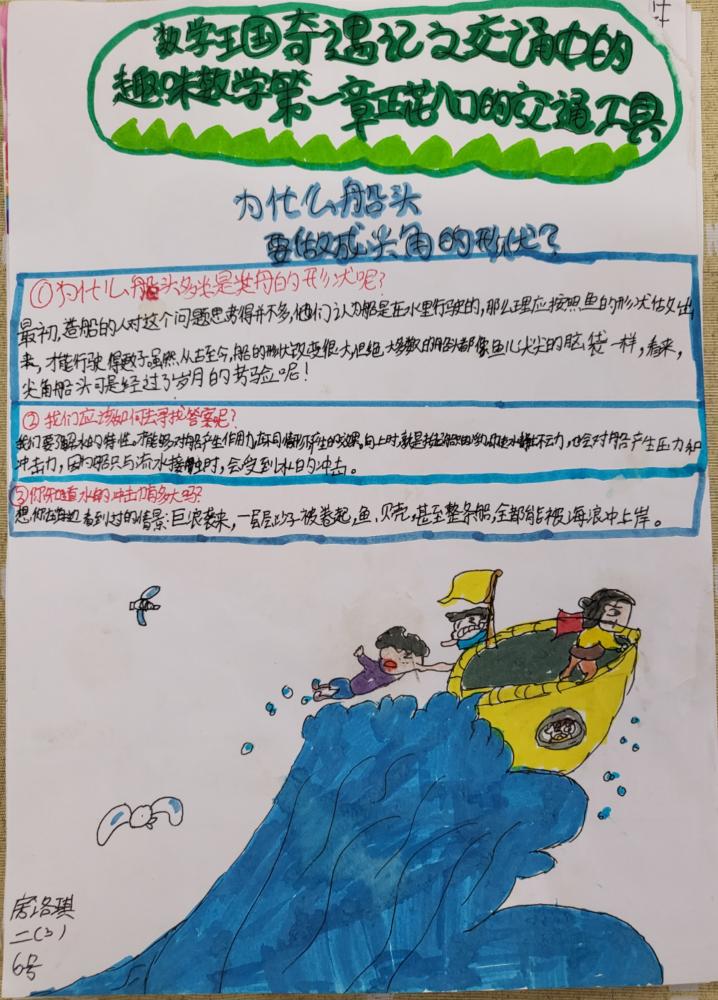 数学王国奇遇记之交通中的
趣味数学第一章五花八门的交通工具
为什么船头
要做成尖角的形状?
①为什么船头多半是尖角的形状呢?
最初,造船的人对这个问题思考得并不多,他们认为船是在水里行驶的,那么理应按照鱼的形状做出
来,才能行驶得更好。虽然从古至今,船的形状改变很大,但绝大多数的船头都像鱼儿尖尖的脑袋一样,看来,
尖角船头可是经过了岁月的考验呢!
②我们应该如何去寻找答案呢?
我们要了解水的特性,才能够对船产生作用力,
也会对船产生压力和
冲击力,因为船只与流水接触时,会受到水的冲击。
③你知道水的冲击力有多大吗?
想你在海边看到过的情景:巨浪袭来,一层层沙子被卷起,鱼、贝壳,甚至整条船,全部能被海浪冲上岸。
房洛琪
二(3)
6号